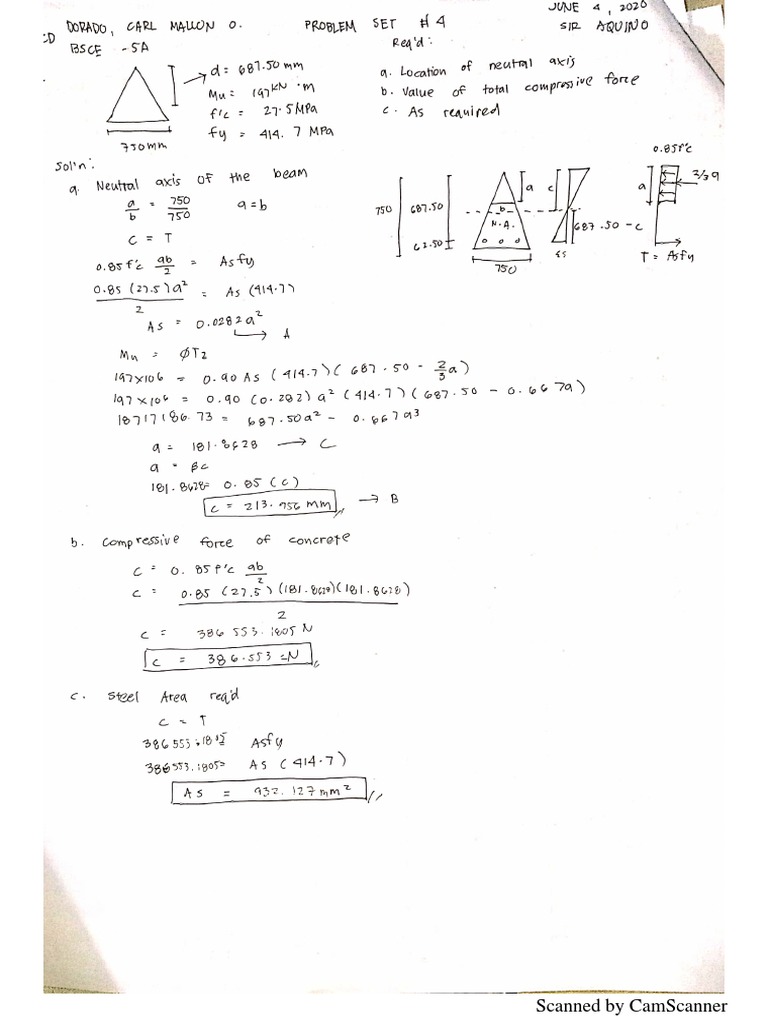 DORADO, CARL MALLON O.
PROBLEM SET #4
JUNE 4, 2020
CD
BSCE - 5A
SIR AQUINO
d = 687.50 mm
Mu = 197 kN·m
f'c = 27.5 MPa
fy = 414.7 MPa
750 mm
Req'd:
a. Location of neutral axis
b. Value of total compressive force
c. As required
Sol'n:
a. Neutral axis of the beam
a/b = 750/750 a = b
C = T
0.85 f'c ab/2 = Asfy
0.85 (27.5) a²/2 = As (414.7)
As = 0.0282a² → A
750
687.50
62.50
a
b
N.A.
750
c
687.50 - c
εs
0.85f'c
a
2/3 a
T = Asfy
Mu = ØTz
197x106 = 0.90 As (414.7)(687.50 - 2/3 a)
197x106 = 0.90 (0.282) a² (414.7)(687.50 - 0.667a)
18717186.73 = 687.50a² - 0.667a³
a = 181.8628 → C
a = βc
181.8628 = 0.85 (c)
c = 213.956 mm → B
b. Compressive force of concrete
C = 0.85 f'c ab/2
C = 0.85 (27.5)(181.8628)(181.8628)/2
C = 386 553.1805 N
C = 386.553 =N
c. Steel Area req'd
C = T
386553.1805 Asfy
386553.1805 = As (414.7)
As = 932.127 mm²
Scanned by CamScanner